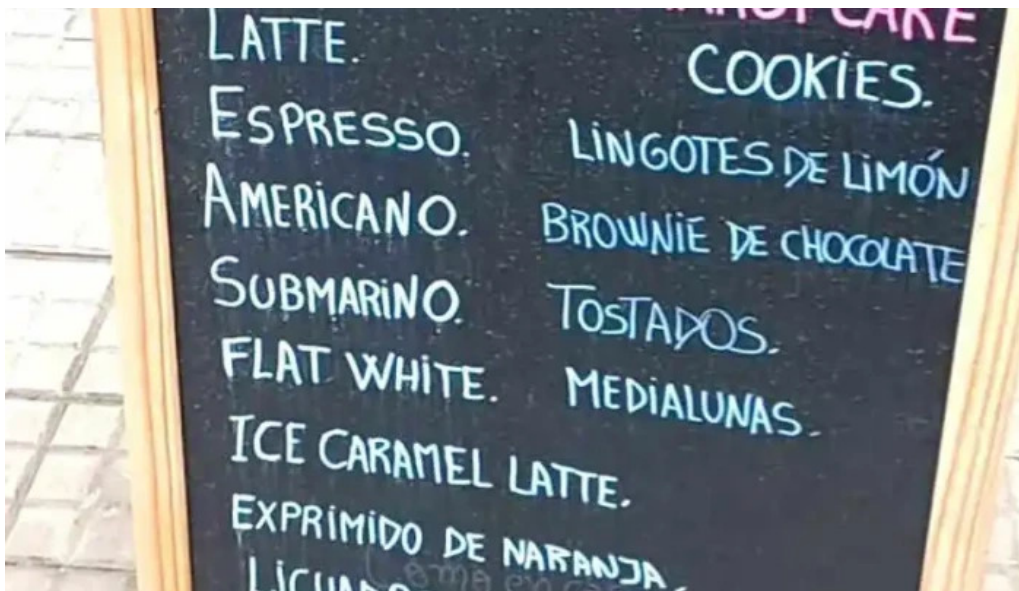 LATTE.
ESPRESSO.
AMERICANO.
SUBMARINO.
FLAT WHITE.
ICE CARAMEL LATTE.
EXPRIMIDO DE NARANJA.
CAKE
COOKIES.
LINGOTES DE LIMÓN
BROWNIE DE CHOCOLATE
TOSTADOS.
MEDIALUNAS.